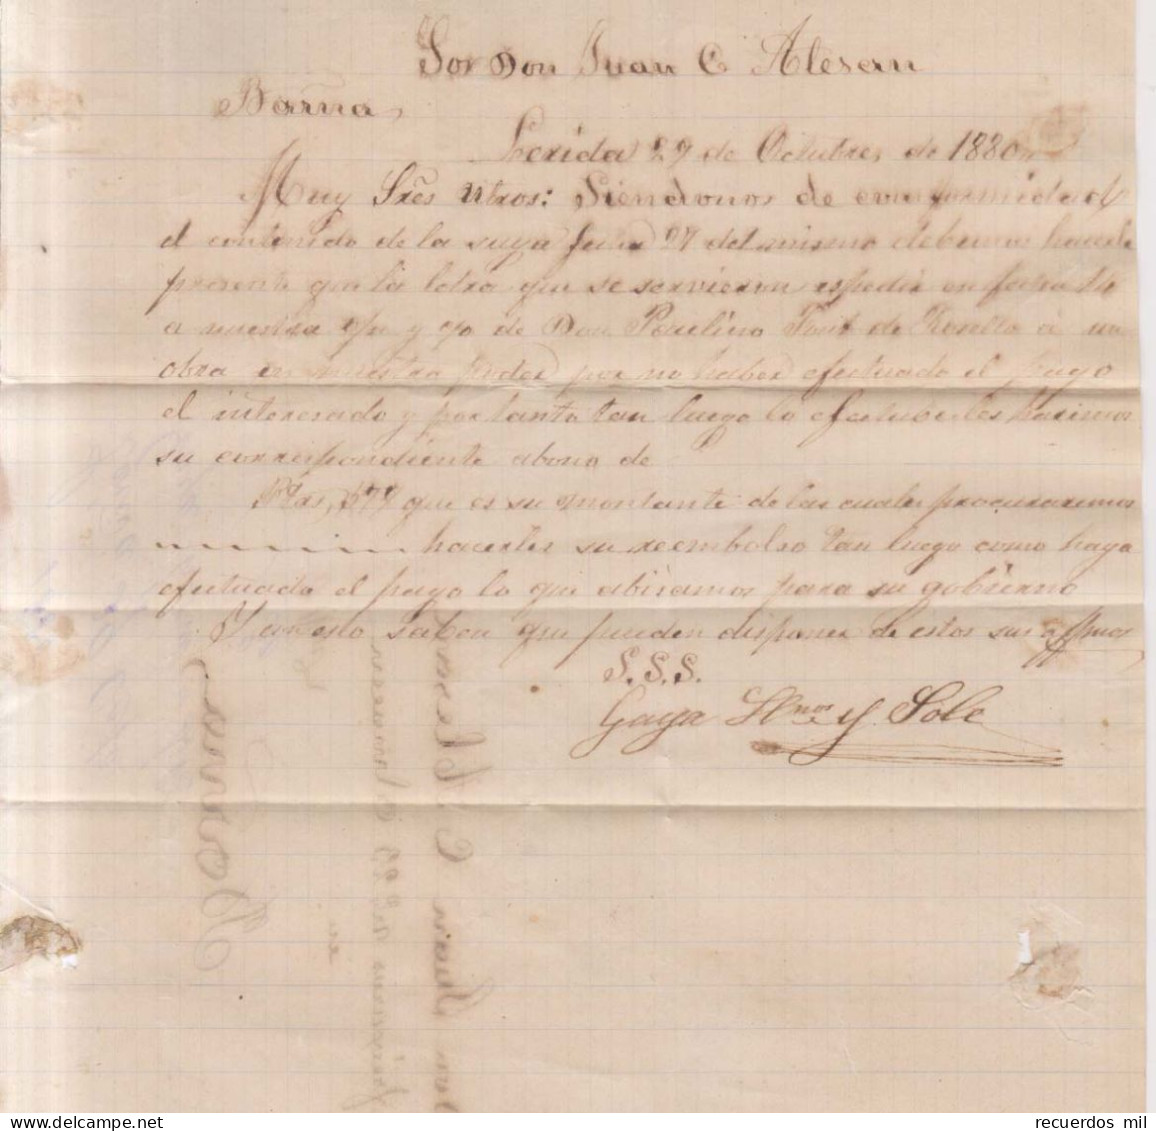 Sor Don Juan C Alesan
Barña
Lerida 29 de Octubre, de 1880
Muy Srẽs ntros: Siendonos de conformidad
el contenido de la suya fecha 27 del mismo debemos hacerle
presente que la letra que se servieron espedir en fecha 14
a nuestra o/n y c/o de Don Paulino Font de Rosello
obra en nuestro poder por no haber efectuado el pago
el interesado y por tanto tan luego lo efectube les haremos
su correspondiente abono de
Ptas, 579 que es su montante de las cuales procuraremos
hacerles su reembolso tan luego como haya
efectuado el pago lo que abisamos para su gobierno
Y con esto saben que pueden disponer de estos sus affmos
S. S. S.
Gaya Hnos y Sole
recuerdos mil